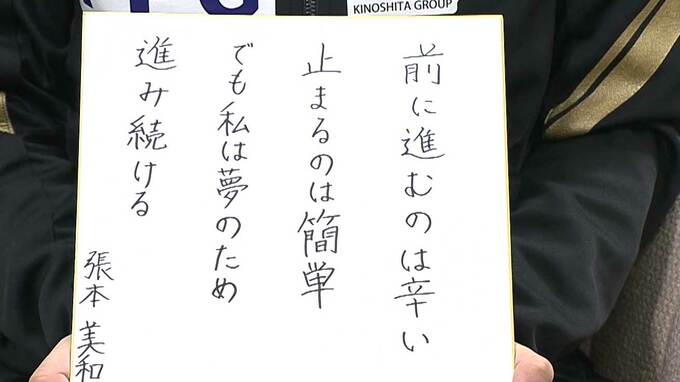 KINOSHITA GROUP
前に進むのは辛い
止まるのは簡単
でも私は夢のため
進み続ける
張本美和